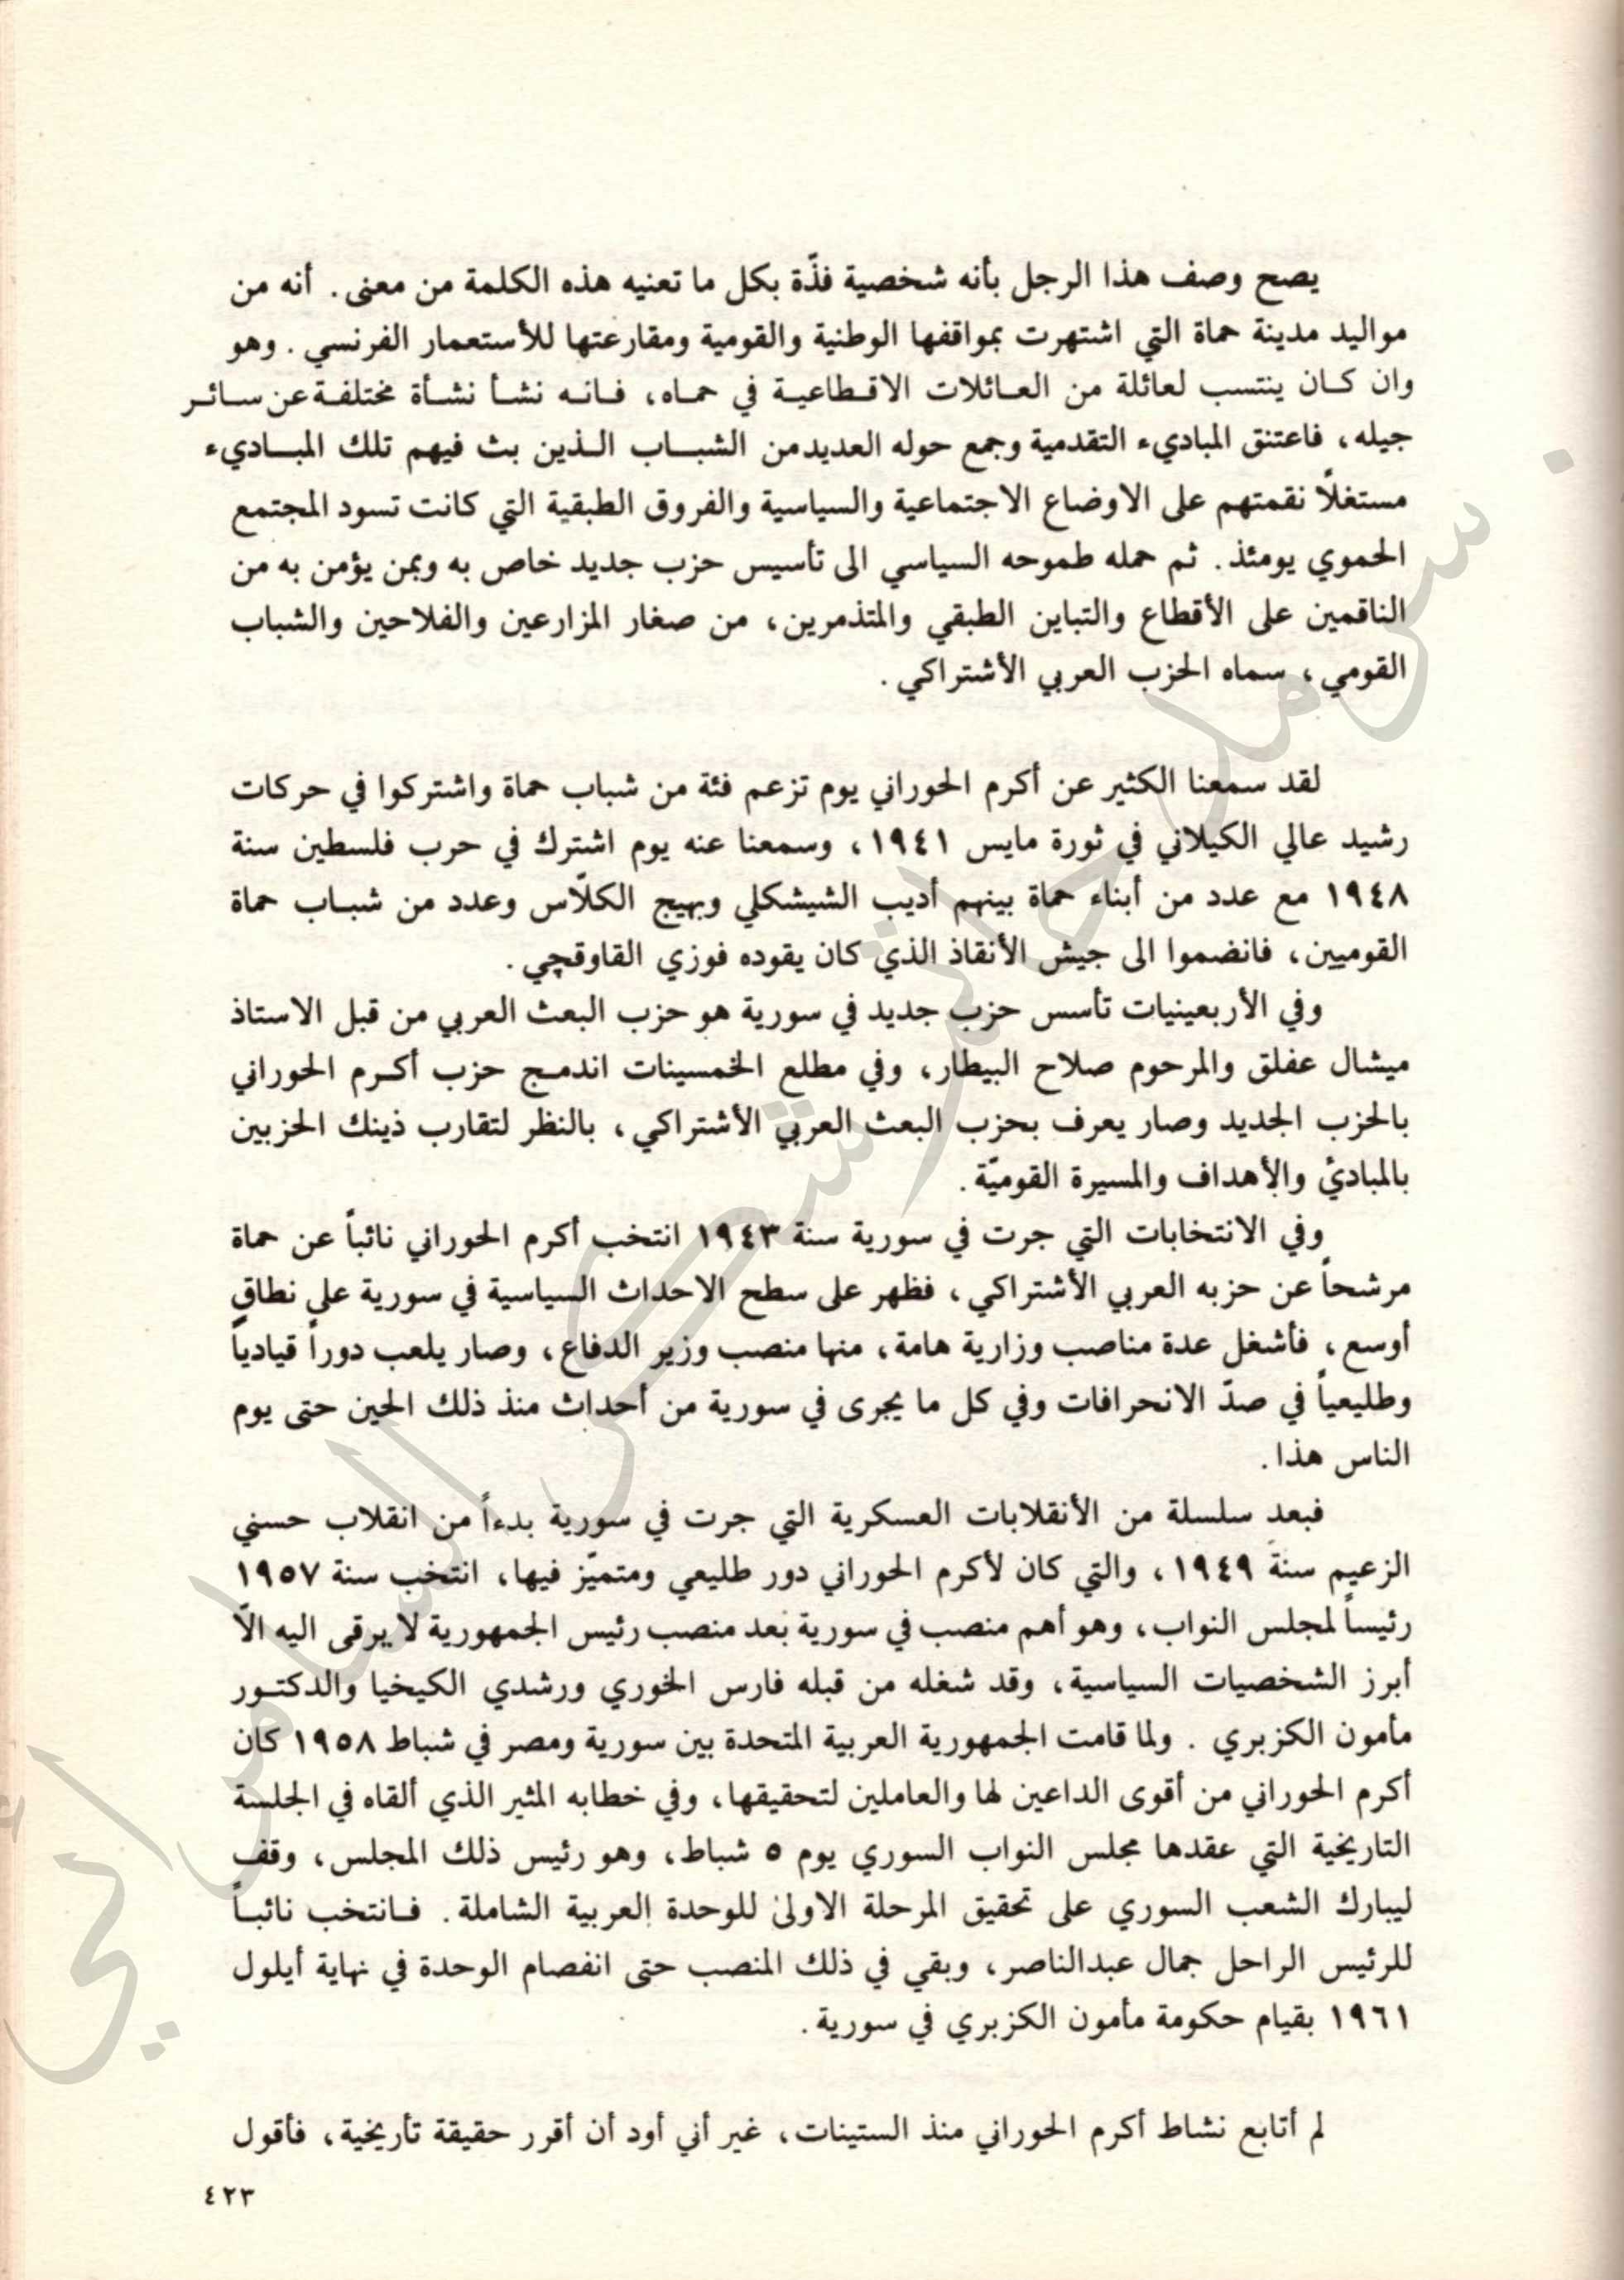 يصح وصف هذا الرجل بأنه شخصية فذّة بكل ما تعنيه هذه الكلمة من معنى. أنه من
مواليد مدينة حماة التي اشتهرت بمواقفها الوطنية والقومية ومقارعتها للأستعمار الفرنسي. وهو
وان كان ينتسب لعائلة من العائلات الاقطاعية في حماه، فانه نشأ نشأة مختلفة عن سائر
جيله، فاعتنق المباديء التقدمية وجمع حوله العديد من الشباب الذين بث فيهم تلك المباديء
مستغلًا نقمتهم على الاوضاع الاجتماعية والسياسية والفروق الطبقية التي كانت تسود المجتمع
الحموي يومئذ. ثم حمله طموحه السياسي الى تأسيس حزب جديد خاص به وبمن يؤمن به من
الناقمين على الأقطاع والتباين الطبقي والمتذمرين، من صغار المزارعين والفلاحين والشباب
القومي، سماه الحزب العربي الأشتراكي.
لقد سمعنا الكثير عن أكرم الحوراني يوم تزعم فئة من شباب حماة واشتركوا في حركات
رشيد عالي الكيلاني في ثورة مايس ١٩٤١، وسمعنا عنه يوم اشترك في حرب فلسطين سنة
١٩٤٨ مع عدد من أبناء حماة بينهم أديب الشيشكلي وبهيج الكلّاس وعدد من شباب حماة
القوميين، فانضموا الى جيش الأنقاذ الذي كان يقوده فوزي القاوقچي.
وفي الأربعينيات تأسس حزب جديد في سورية هو حزب البعث العربي من قبل الاستاذ
ميشال عفلق والمرحوم صلاح البيطار، وفي مطلع الخمسينات اندمج حزب أكرم الحوراني
بالحزب الجديد وصار يعرف بحزب البعث العربي الأشتراكي، بالنظر لتقارب ذينك الحزبين
بالمبادئ والأهداف والمسيرة القوميّة.
وفي الانتخابات التي جرت في سورية سنة ١٩٤٣ انتخب أكرم الحوراني نائباً عن حماة
مرشحاً عن حزبه العربي الأشتراكي، فظهر على سطح الاحداث السياسية في سورية على نطاقٍ
أوسع، فأشغل عدة مناصب وزارية هامة، منها منصب وزير الدفاع، وصار يلعب دوراً قيادياً
وطليعياً في صدّ الانحرافات وفي كل ما يجرى في سورية من أحداث منذ ذلك الحين حتى يوم
الناس هذا.
فبعد سلسلة من الأنقلابات العسكرية التي جرت في سورية بدءاً من انقلاب حسني
الزعيم سنة ١٩٤٩، والتي كان لأكرم الحوراني دور طليعي ومتميّز فيها، انتخب سنة ١٩٥٧
رئيساً لمجلس النواب، وهو أهم منصب في سورية بعد منصب رئيس الجمهورية لا يرقى اليه الّا
أبرز الشخصيات السياسية، وقد شغله من قبله فارس الخوري ورشدي الكيخيا والدكتور
مأمون الكزبري. ولما قامت الجمهورية العربية المتحدة بين سورية ومصر في شباط ١٩٥٨ كان
أكرم الحوراني من أقوى الداعين لها والعاملين لتحقيقها، وفي خطابه المثير الذي ألقاه في الجلسة
التاريخية التي عقدها مجلس النواب السوري يوم ٥ شباط، وهو رئيس ذلك المجلس، وقف
ليبارك الشعب السوري على تحقيق المرحلة الاولى للوحدة العربية الشاملة. فانتخب نائباً
للرئيس الراحل جمال عبدالناصر، وبقي في ذلك المنصب حتى انفصام الوحدة في نهاية أيلول
١٩٦١ بقيام حكومة مأمون الكزبري في سورية.
لم أتابع نشاط أكرم الحوراني منذ الستينات، غير أني أود أن أقرر حقيقة تأريخية، فأقول
٤٢٣